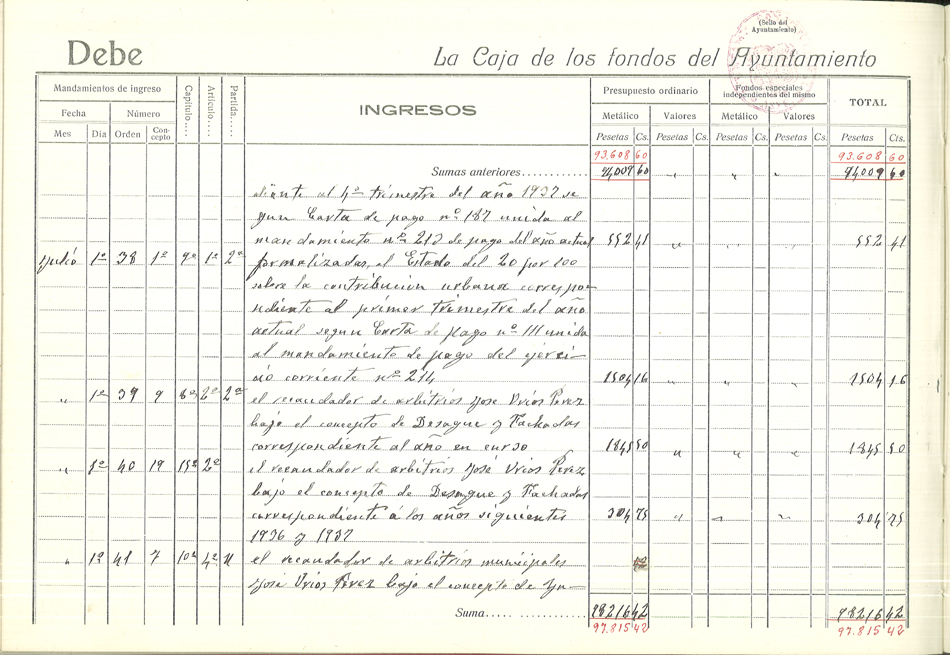 (Sello del
Ayuntamiento)
Debe La Caja de los fondos del Ayuntamiento
Mandamientos de ingreso Capítulo.... Artículo.... Partida..... INGRESOS Presupuesto ordinario Fondos especiales independientes del mismo TOTAL
Fecha Número Metálico Valores Metálico Valores
Mes Día Orden Concepto Pesetas Cs. Pesetas Cs. Pesetas Cs. Pesetas Cs. Pesetas Cts.
93.608 60 93.608 60
Sumas anteriores............ 94009 60 " " " 94009 60
diente al 4º trimestre del año 1937 se
gun Carta de pago nº 187 unida al
mandamiento nº 213 de pago del año actual 552 41 " " " 552 41
Julio 1º 38 1º 9º 1º 2ª formalizadas, el Estado del 20 por 100
sobre la contribucion urbana correspon-
diente al primer trimestre del año
actual segun Carta de pago nº 111 unida
al mandamiento de pago del ejerci-
cio corriente nº 214 1504 16 " " " 1504 16
" 1º 39 9 8º 2º 2ª el recaudador de arbitrios José Urios Perez
bajo el concepto de Desague y Fachadas
correspondiente al año en curso 1845 50 " " " 1845 50
" 1º 40 19 15º 2º el recaudador de arbitrios José Urios Perez
bajo el concepto de Desague y Fachadas
correspondiente á los años siguientes 304 75 " " " 304 75
1936 y 1937
" 1º 41 7 10º 4º el recaudador de arbitrios municipales
José Urios Perez bajo el concepto de
Suma..... 98216 42 98216 42
97.815 42 97.815 42